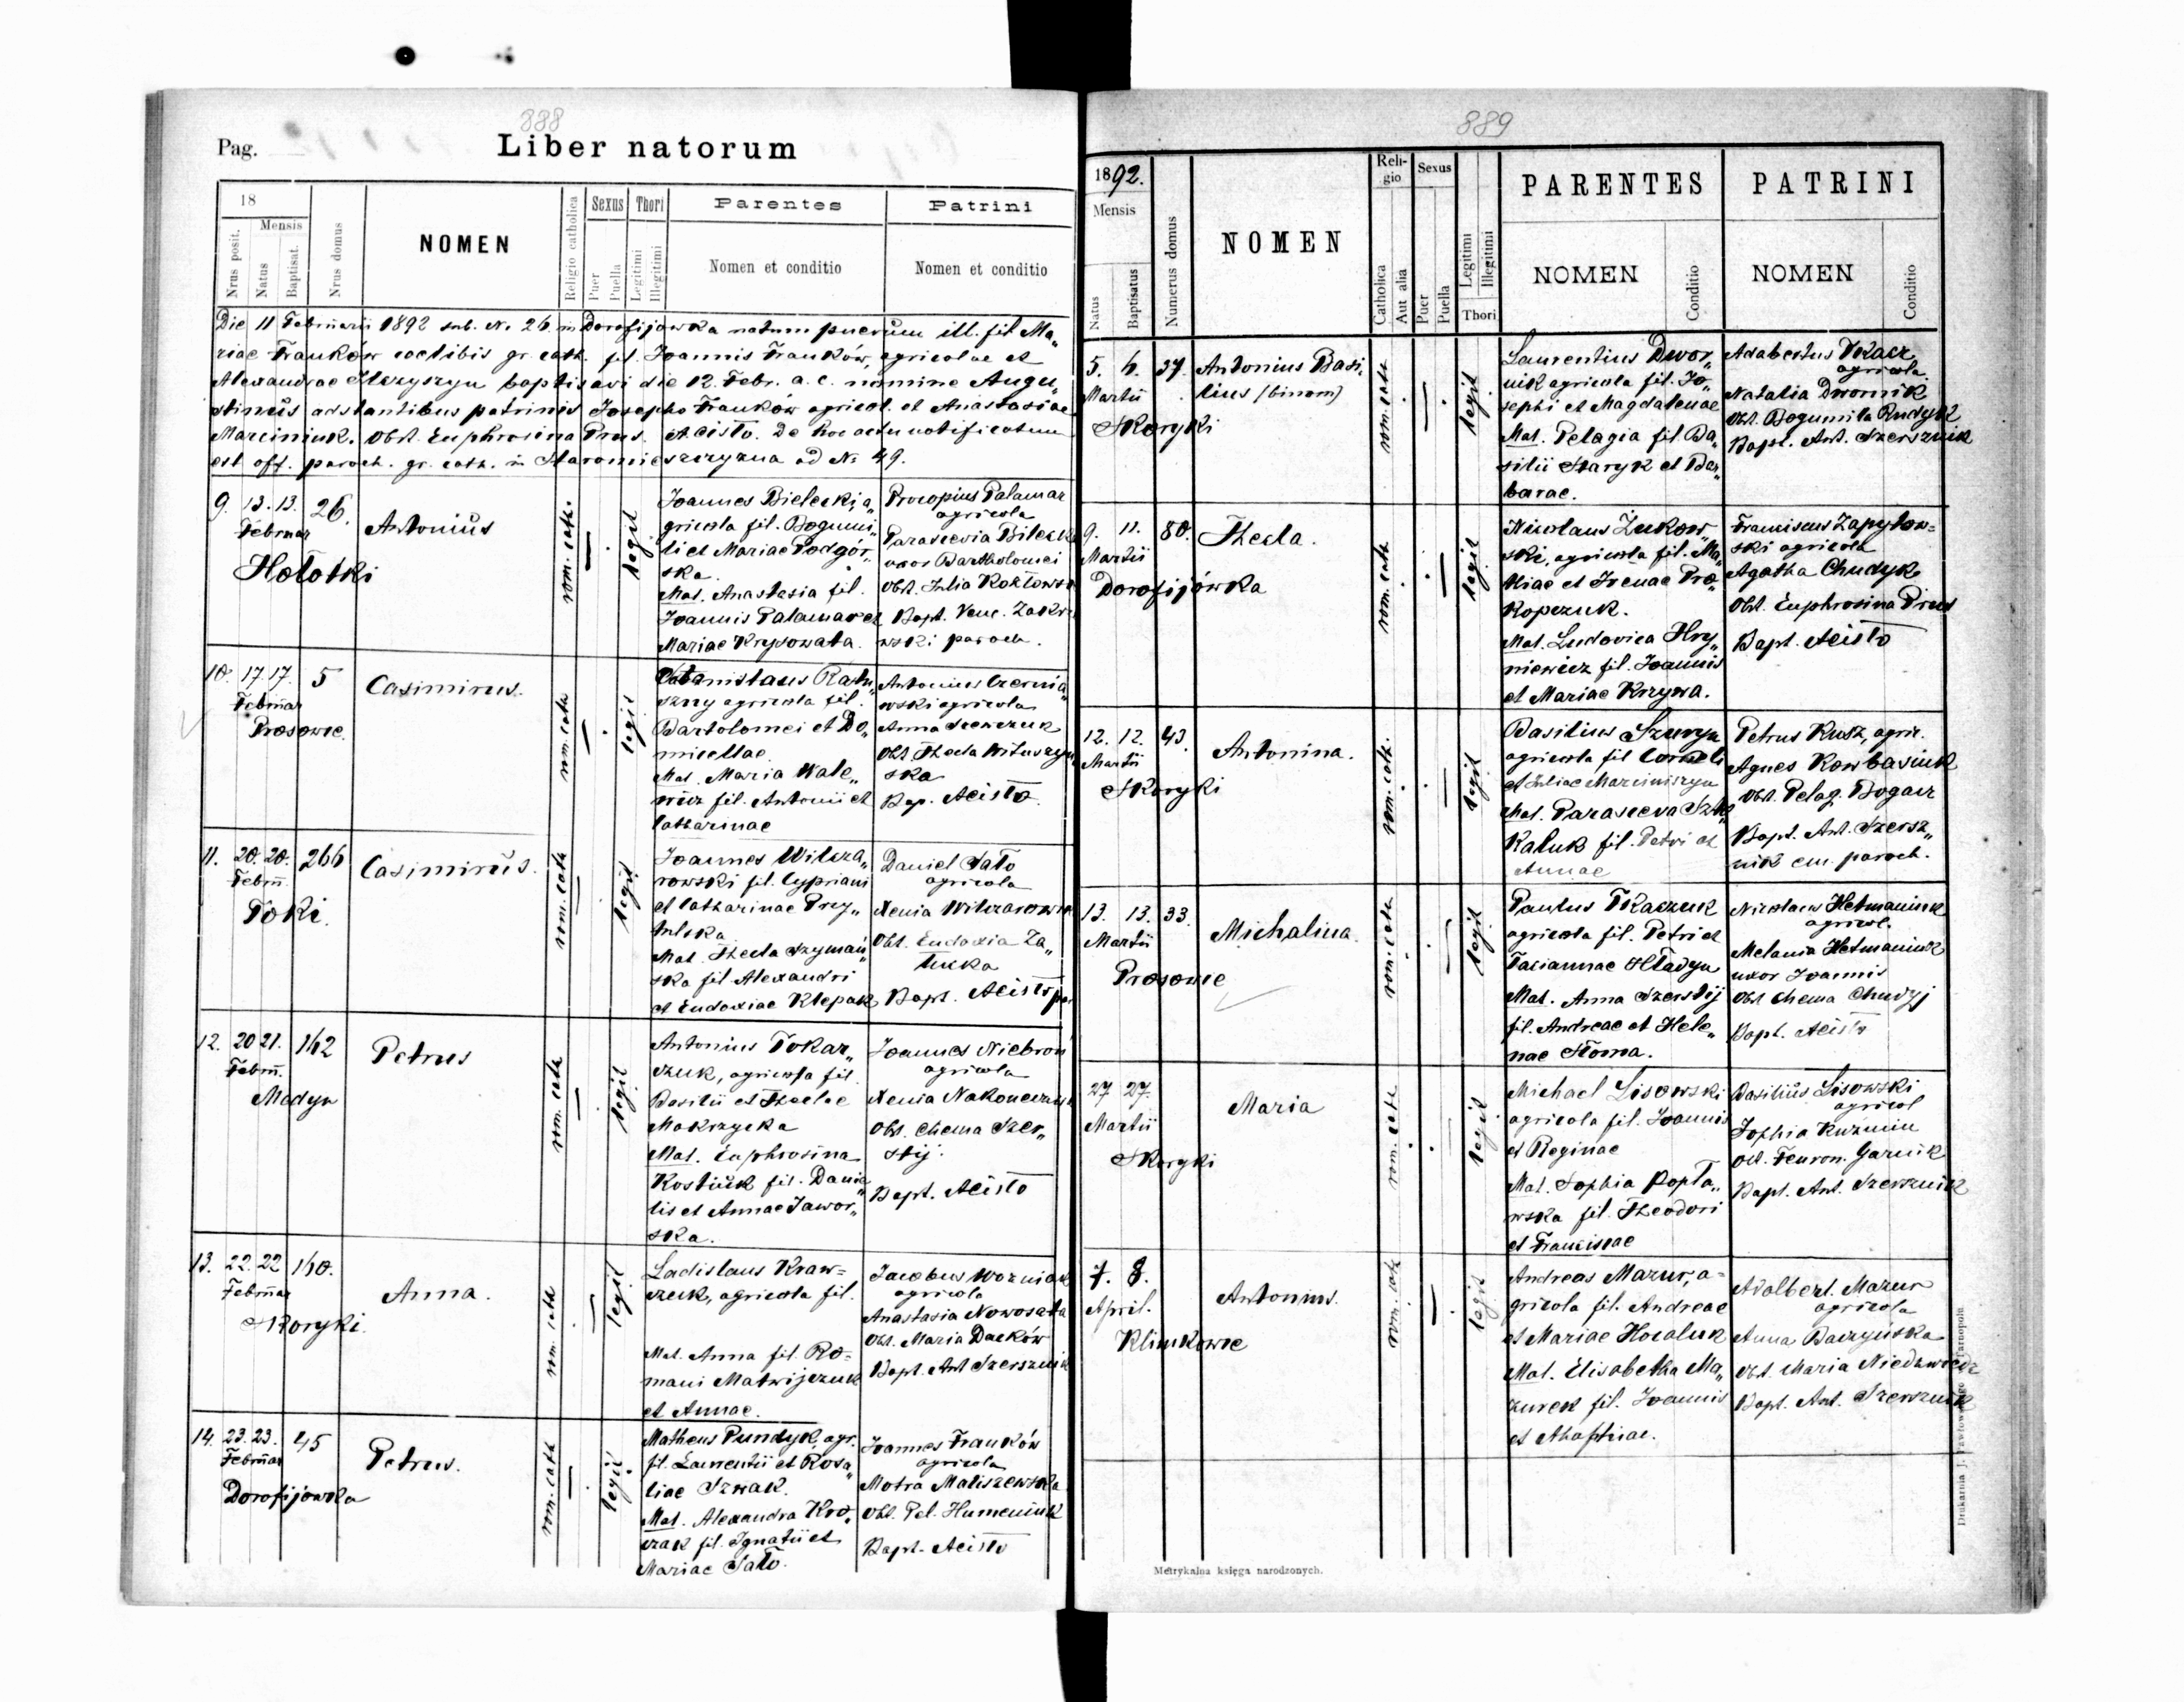 888
Pag.
Liber natorum
18
Mensis
Nrus posit.
Natus
Baptisat.
Nrus domus
NOMEN
Religio catholica
Sexus
Puer
Puella
Thori
Legitimi
Illegitimi
Parentes
Nomen et conditio
Patrini
Nomen et conditio
Die 11 Februarii 1892 sub. N. 26 in Dorofijowka natum puerum ill. fil Ma„
riae Franków coelibis gr. cath. fil. Joannis Franków, agricolae et
Alexandrae Hryszyn baptisavi die 12. Febr. a. c. nomine Augu„
stinus adstantibus patrinis Josepho Franków agricol. et Anastasiae
Marciniuk. Obst. Euphrosina Prus. Acisto. De hoc actu notificatum
est off. paroch. gr. cath. in Staromieszczyzna ad N. 49.
9. 13. 13. 26.
Februar
Antonius
Hołotki
rom. cath.
legit
Joannes Bielecki, a„
gricola fil. Bogumi„
li et Mariae Podgór„
ska.
Mat. Anastasia fil.
Joannis Palamar et
Mariae Krysowata.
Procopius Palamar
agricola
Parascevia Bilecka
uxor Bartholomei
Obst. Julia Kozłowska
Bapt. Venc. Zakrze
wski paroch.
10. 17. 17. 5
Februar
Casimirus.
Prosowce.
rom. cath
legit
Stanislaus Ratu„
szny agricola fil.
Bartolomei et Do„
micellae
Mat. Maria Wale„
wicz fil. Antonii et
Catharinae
Antonius Czernia„
wski agricola
Anna Szewczuk
Obst. Thecla Wituszyń„
ska
Bap. Acisto.
11. 20. 20. 266
Febru.
Casimirus.
Toki.
rom. cath
legit
Joannes Wilcza„
rowski fil. Cypriani
et Catharinae Prey„
tulska
Mat. Thecla Szymań„
ska fil. Alexandri
et Eudoxiae Klepak
Daniel Sato
agricola
Xenia Wilczarowska
Obst. Eudoxia Za„
łucka
Bapt. Acisto
12. 20 21. 162
Febru.
Petrus
Medyn
rom. cath
legit
Antonius Tokar„
czuk, agricola fil.
Basilii et Theclae
Mokrzycka
Mat. Euphrosina
Kostiuk fil. Danie„
lis et Annae Jawor„
ska.
Joannes Niebroń
agricola
Xenia Nakoneczna
Obst. Chema Szer„
stij.
Bapt. Acisto
13. 22. 22 160.
Februar
Anna.
Skoryki.
rom. cath
legit
Ladislaus Kraw=
czuk, agricola fil.
Mat. Anna fil. Ro=
mani Matwijczuk
et Annae.
Jacobus Wozniak
agricola
Anastasia Nowosada
Obst. Maria Daćków
Bapt. Ant Szersznik
14. 23. 23. 45
Februar
Petrus.
Dorofijowka
rom. cath
legit
Matheus Pundyk, agr.
fil. Laurentii et Rosa„
liae Szwak.
Mat. Alexandra Kro„
czak fil. Ignatii et
Mariae Sato.
Joannes Franków
agricola
Motra Maliszewska
Obst. Pel. Humeniuk
Bapt. Acisto
889
1892.
Mensis
Natus
Baptisatus
Numerus domus
NOMEN
Reli-
gio
Catholica
Aut alia
Sexus
Puer
Puella
Legitimi
Illegitimi
Thori
PARENTES
NOMEN
Conditio
PATRINI
NOMEN
Conditio
5. 6. 37. Antonius Basi„
Martii lius (binom)
Skoryki
rom. cath
legit
Laurentius Dwor„
nik agricola fil. Jo„
sephi et Magdalenae
Mat. Pelagia fil. Ba„
silii Staryk et Bar„
barae.
Adalbertus Tkacz
agricola
Natalia Dwornik
Obst. Bogumila Rudyk
Bapt. Ant. Szersznik
9. 11. 80. Thecla.
Martii
Dorofijówka
rom. cath
legit
Nicolaus Żukow„
ski, agricola fil. Ma„
thiae et Irenae Pro„
kopczuk.
Mat. Ludovica Hry„
niewicz fil. Joannis
et Mariae Krzywa.
Franciscus Zapytow=
ski agricola
Agatha Chudyk
Obst. Euphrosina Prus
Bapt. Acisto
12. 12. 43. Antonina.
Martii
Skoryki
rom. cath.
legit
Basilius Szwryn
agricola fil Corneli
et Juliae Marciniszyn
Mat. Parasceva Szka„
kaluk fil. Petri et
Annae
Petrus Kusz, agric.
Agnes Kowbasiuk
Obst. Pelag. Bogacz
Bapt. Ant. Szersz„
nik em. paroch.
13. 13. 33. Michalina.
Martii
Prosowce
rom. cath
legit
Paulus Tkaczuk
agricola fil. Petri et
Tacianae Hładyn
Mat. Anna Szerstij
fil. Andreae et Hele„
nae Słoma.
Nicolaus Hetmaniuk
agricol.
Melania Hetmaniuk
uxor Joannis
Obst Chema Chudyj
Bapt. Acisto
27 27.
Maria
Martii
Skoryki
rom. cath
legit
Michael Lisowski
agricola fil. Joannis
et Reginae
Mat. Sophia Popła„
wska fil. Theodori
et Franciscae
Basilius Lisowski
agricol
Sophia Kuzmin
Obst. Fewron. Garnik
Bapt. Ant. Szersznik
7. 8.
April.
Antonius.
Klimkowce
rom. cath
legit
Andreas Mazur, a=
gricola fil. Andreae
et Mariae Kowaluk
Mat. Elisabetha Ma„
zurek fil. Joannis
et Ahaphiae.
Adalbert. Mazur
agricola
Anna Baczyńska
Obst. Maria Niedzwiedz
Bapt. Ant. Szersznik
Metrykalna księga narodzonych.
Drukarnia J. Pawłowskiego w Tarnopolu